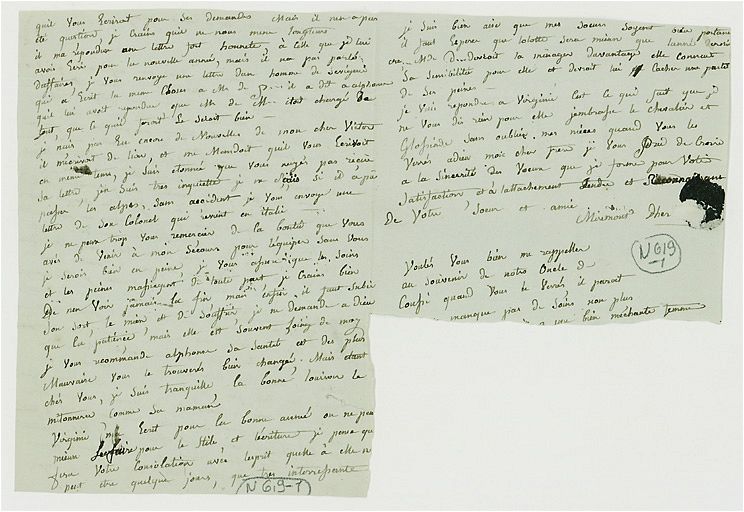 quil Vous Ecrivent pour Ses demandes Mais il nen a pas
été question, je Crains quil ne nous mene longtems
il ma repondue une lettre fort honnete, a Celle que je lui
avois Ecrit pour la nouvelle année, mais il na pas parlé
daffaires, je Vous renvoye une lettre dun homme de
qui a Ecrit la meme Choses a Mr de P... il a dit a alphonse
quil lui avoit repondue que Mr de M... etoit chargé de
tout, que ce quil feroit Le Seroit bien
je nais pas Eu encore de Nouvelles de mon cher Victor
il mecrivoit de lion, et me Mandoit quil Vous Ecrivoit
en meme tems, je Suis etonnée que Vous nayés pas recue
Sa lettre, jen Suis tres inquiette je ne Scais Si il a pû
passer les alpes, Sans accident je Vous envoye une
lettre de Son Colonel qui revient en italie
je ne peux trop Vous remercier de la bonté que Vous
avés de Venir a mon Secours pour l'équiper Sans Vous
je Serois bien en peine, je Vous que les Soins
et les peines massiegent de toute part je Crains bien
De nen Voir jamais la fin mais enfin il faut Subir
Son Sort le mien est de Souffrir, je ne demande a dieu
que la patience, mais elle est Souvent Loing de moy
je Vous recommande alphonse Sa Santé est des plus
Mauvaise Vous le trouverés bien changé. Mais etant
chés Vous, je Suis tranquille la bonne louison le
mitonnera Comme Sa maman
Virginie ma Ecrit pour la bonne année on ne peu
mieux pour le Stile et lecriture je pense que
fera Votre Consolation avec lesprit quelle a elle
peut etre quelque jours, que tres interressante
N 619-1
je Suis bien aise que mes Soeurs Soyent bien portante
il faut Esperer que lolotte Sera mieux que lannée derniere
Me D devroit la menager davantage elle Connoit
Sa Sensibilité pour elle et devroit lui Cacher une partie
de Ses peines
je Vais repondre a Virginie Cest ce qui fait que je
ne Vous dis rien pour elle jembrasse le chevalier et
Sans oublier mes nieces quand Vous les
Verrés adieu mon cher frere je Vous prie de Croire
a la Sincerité des Voeux que je forme pour Votre
Satisfaction et a lattachement tendre et Reconnaissante
De Votre Soeur et amie
Miremont
N 619
-1
Voulés Vous bien me rappeller
au Souvenir de notre Oncle de
Coupé quand Vous le Verrés il paroit
manque pas de Soins non plus
bien méchante femme